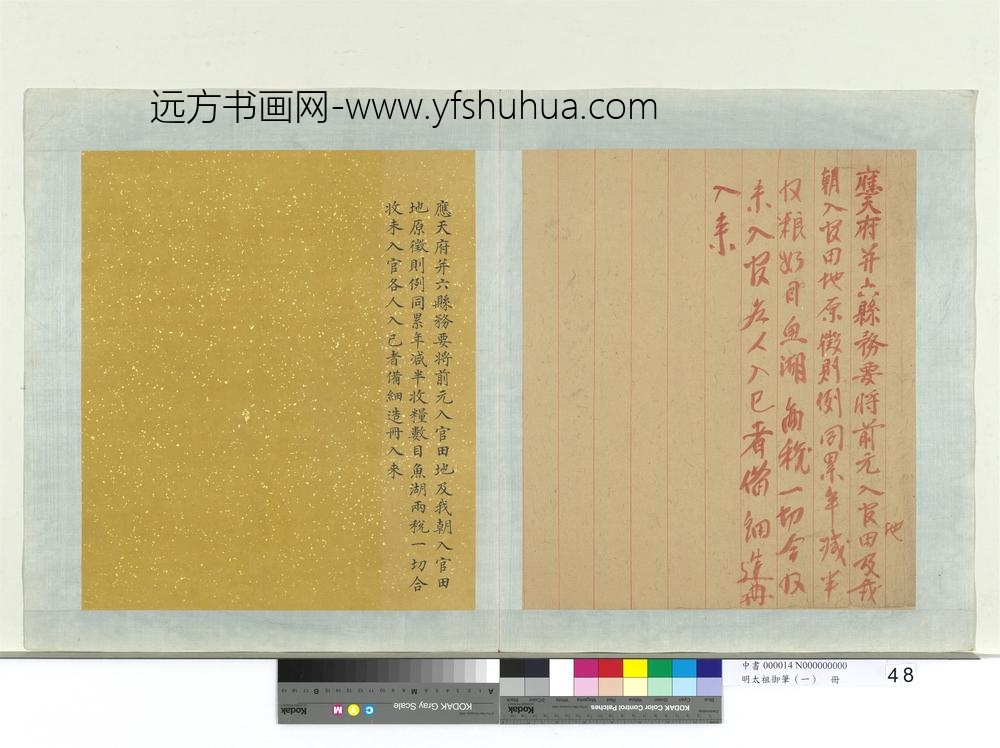 远方书画网-www.yfshuhua.com
應天府并六縣務要將前元入官田地及我
朝入官田地原徵則例同累年減半
收粮數目魚湖兩稅一切合收
未入官各人入己者備細造冊
入来
應天府并六縣務要將前元入官田地及我朝入官田
地原徵則例同累年減半收糧數目魚湖兩稅一切合
收未入官各人入己者備細造冊入来
中書 000014 N000000000
明太祖御筆(一) 冊
48
KODAK Gray Scale
KODAK Color Control Patches
Kodak
Kodak
C Y M
A
M
B